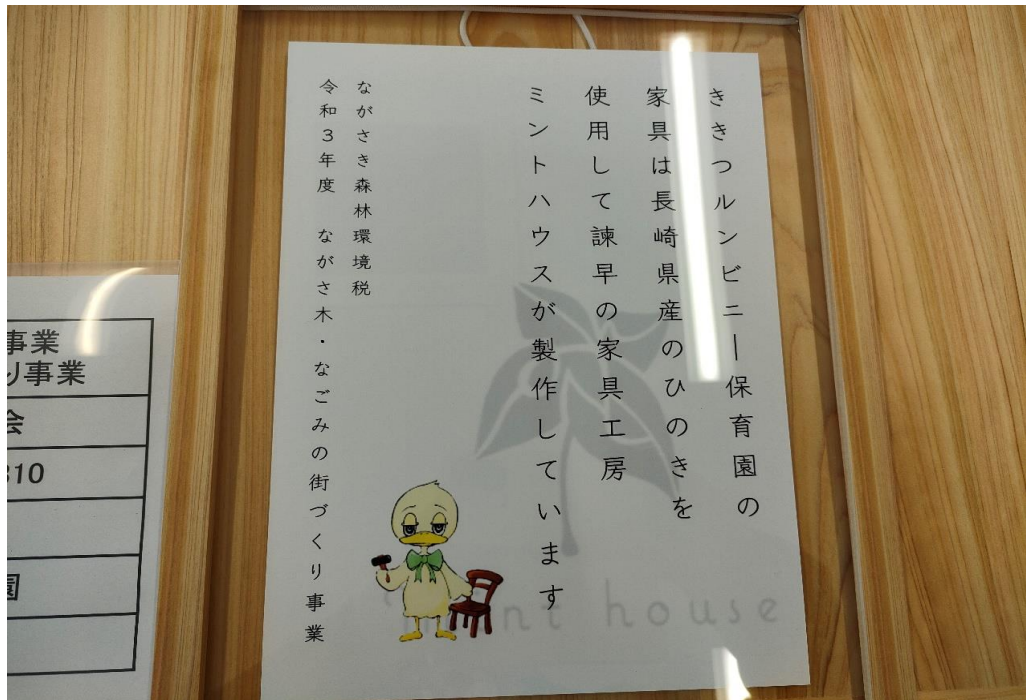 ききつルンビニー保育園の
家具は長崎県産のひのきを
使用して諫早の家具工房
ミントハウスが製作しています
ながさき森林環境税
令和3年度 ながさ木・なごみの街づくり事業
mint house
事業
り事業
会
310
園